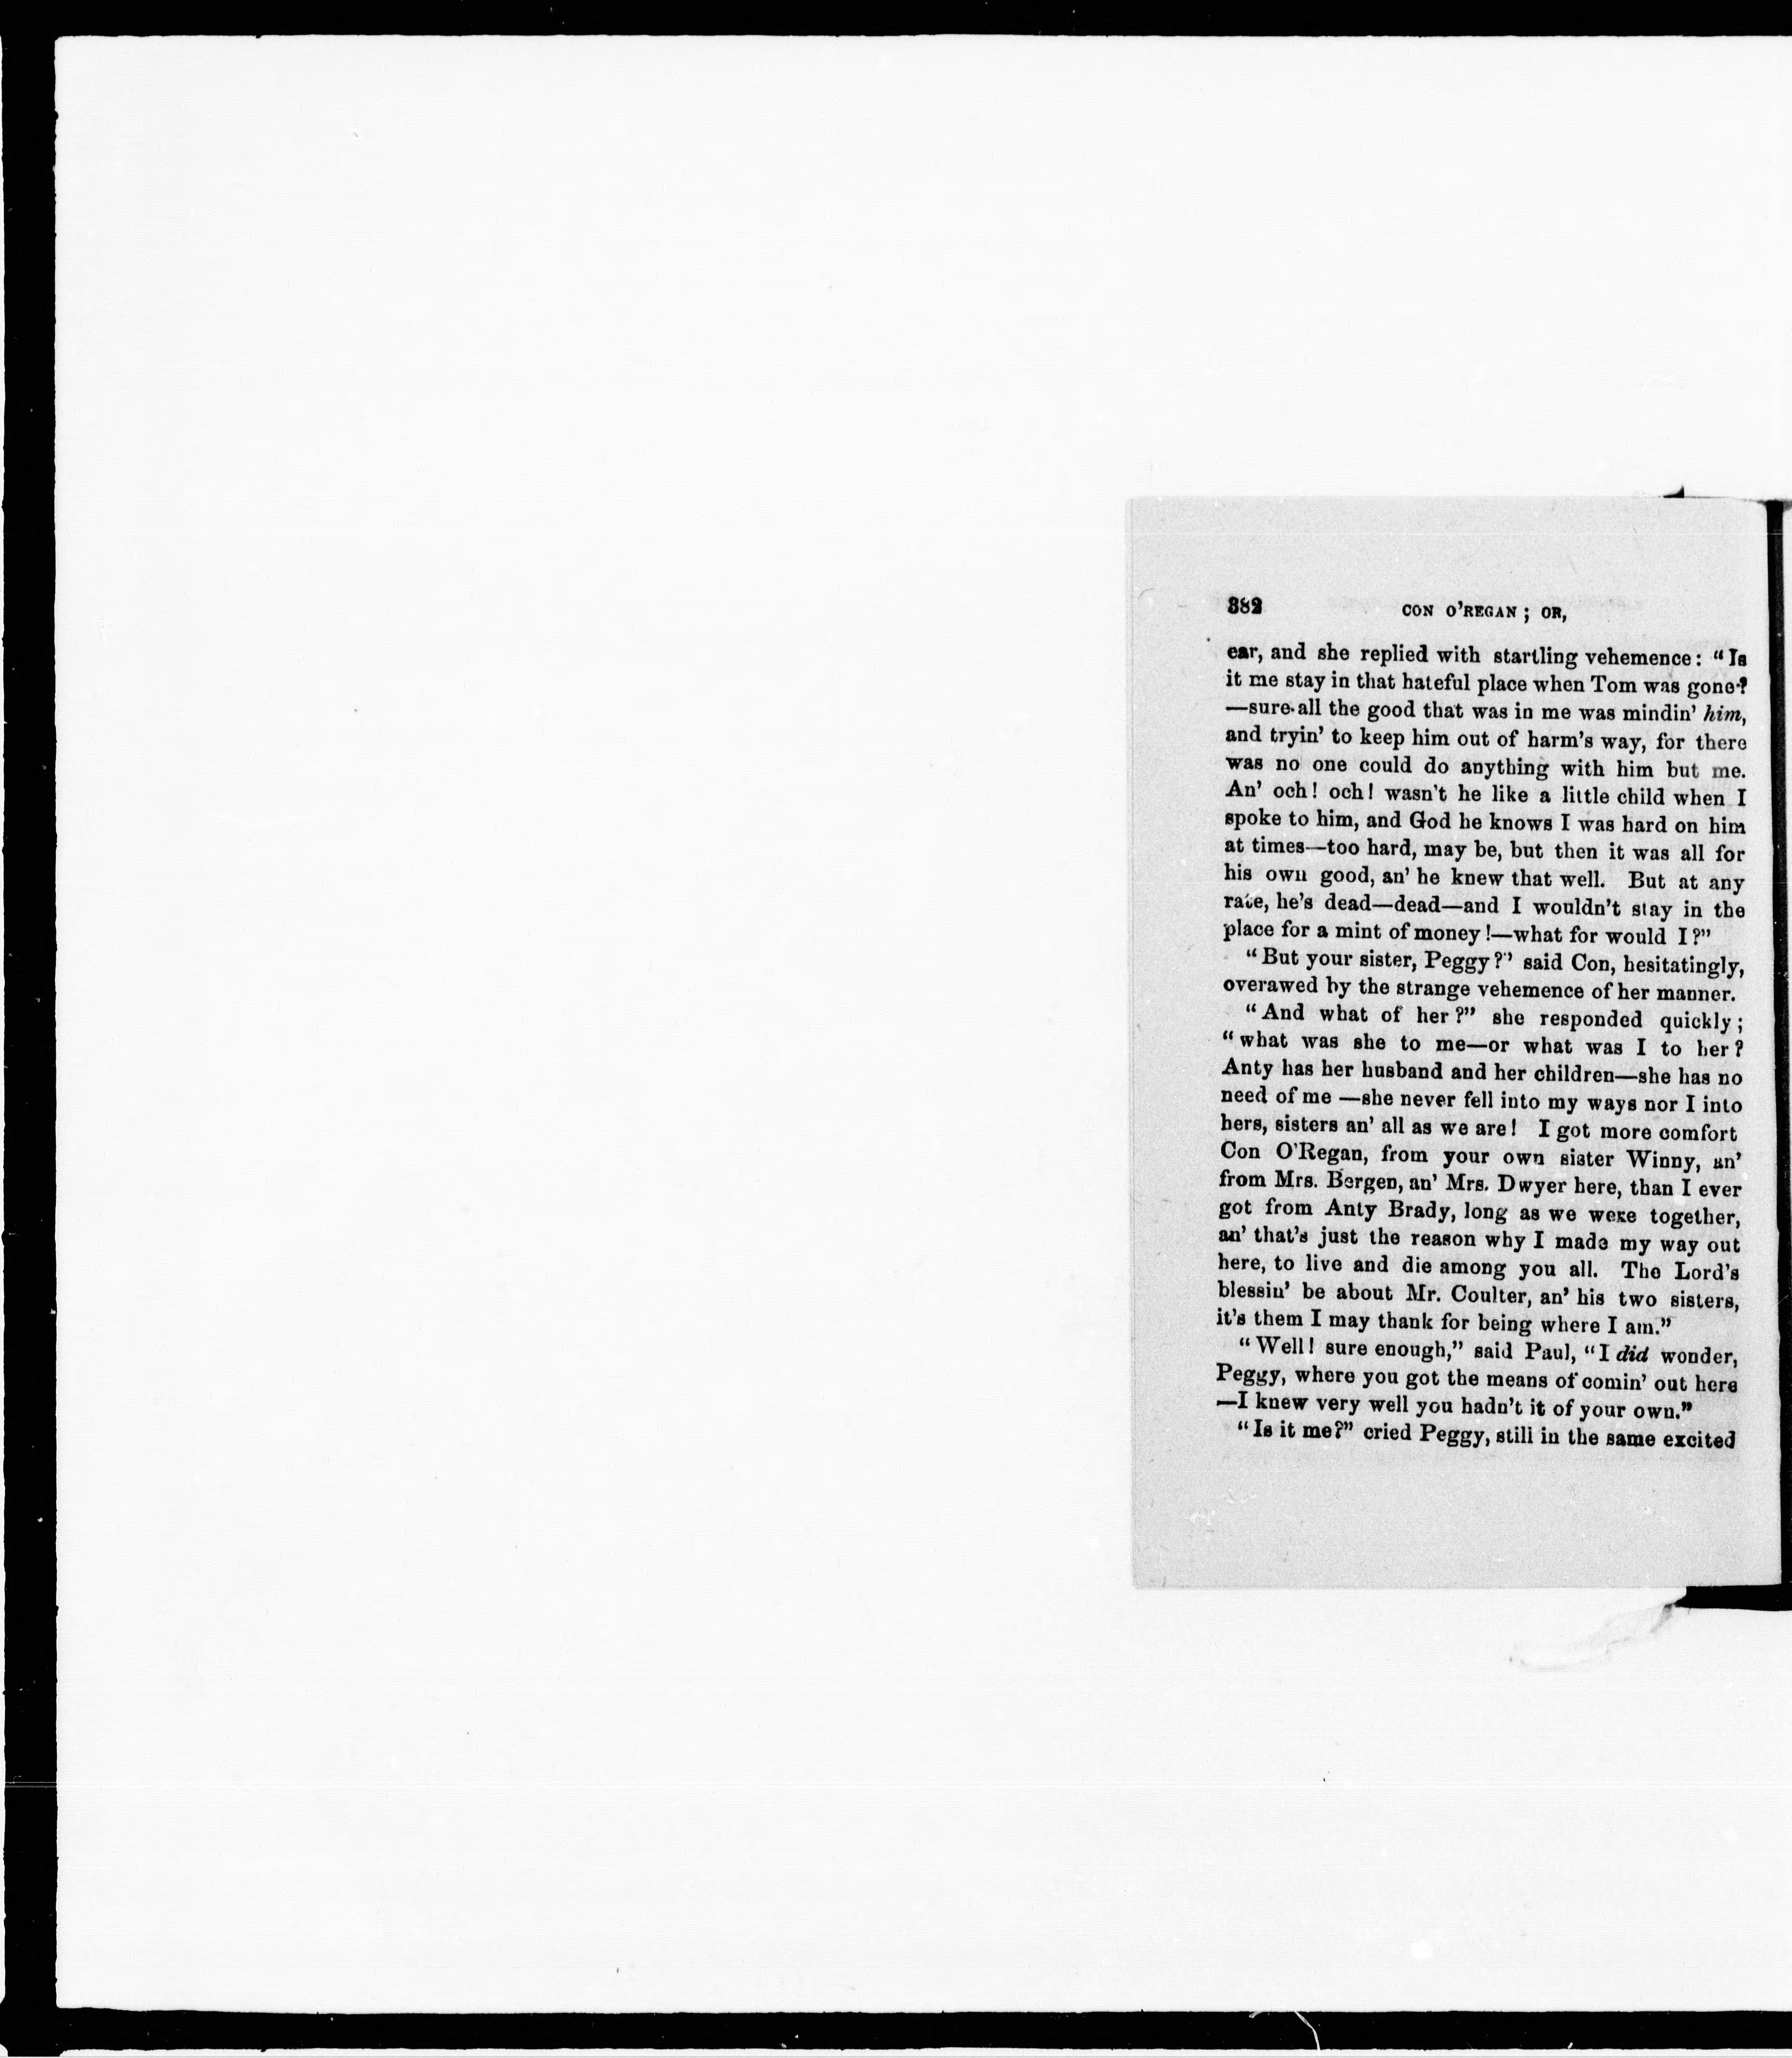 382 CON O'REGAN; OR,
ear, and she replied with startling vehemence: “Is
it me stay in that hateful place when Tom was gone?
—sure all the good that was in me was mindin' him,
and tryin' to keep him out of harm's way, for there
was no one could do anything with him but me.
An' och! och! wasn't he like a little child when I
spoke to him, and God he knows I was hard on him
at times—too hard, may be, but then it was all for
his own good, an' he knew that well. But at any
rate, he's dead—dead—and I wouldn't stay in the
place for a mint of money!—what for would I?”
“But your sister, Peggy?” said Con, hesitatingly,
overawed by the strange vehemence of her manner.
“And what of her?” she responded quickly;
“what was she to me—or what was I to her?
Anty has her husband and her children—she has no
need of me—she never fell into my ways nor I into
hers, sisters an' all as we are! I got more comfort
Con O'Regan, from your own sister Winny, an'
from Mrs. Bergen, an' Mrs. Dwyer here, than I ever
got from Anty Brady, long as we were together,
an' that's just the reason why I made my way out
here, to live and die among you all. The Lord's
blessin' be about Mr. Coulter, an' his two sisters,
it's them I may thank for being where I am.”
“Well! sure enough,” said Paul, “I did wonder,
Peggy, where you got the means of comin' out here
—I knew very well you hadn't it of your own.”
“Is it me?” cried Peggy, still in the same excited